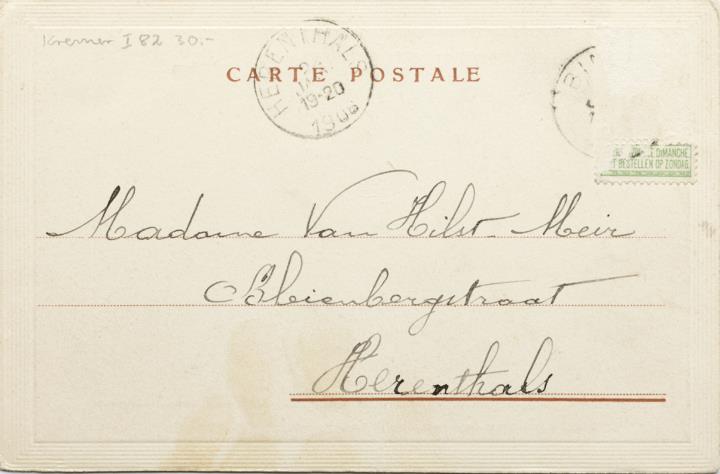 Kremer I 82 30.-
CARTE POSTALE
HERENTHALS
19-20
1906
BIN
DIMANCHE
T BESTELLEN OP ZONDAG
Madame Van Hilst-Meir
Bleienbergstraat
Herenthals